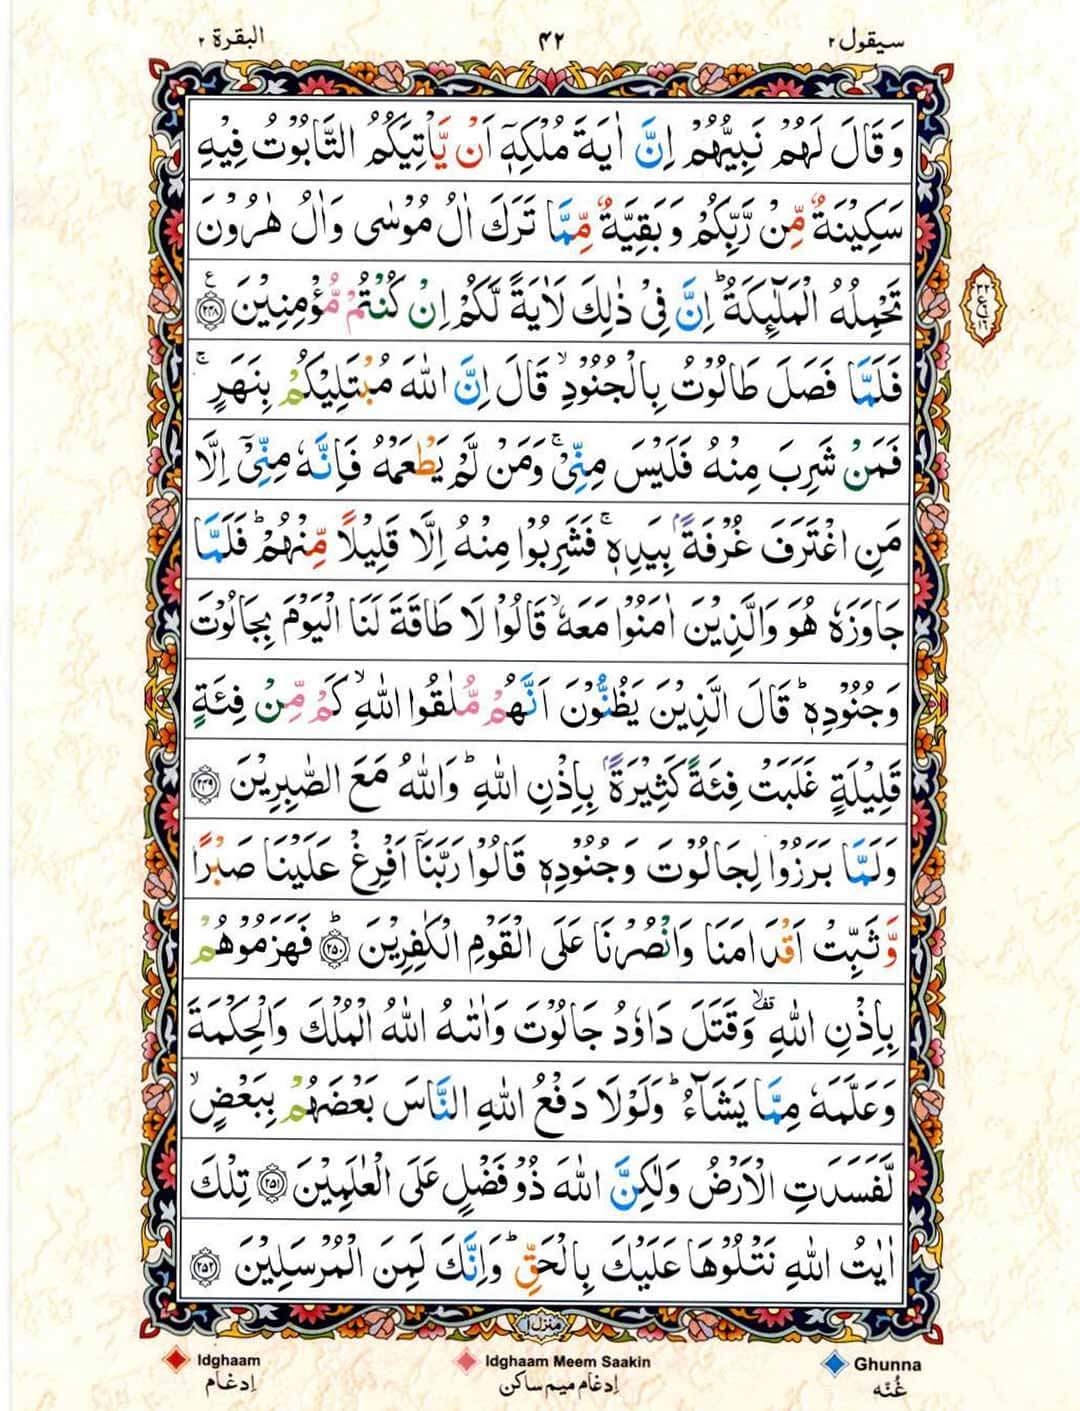 سيقول ٢
٤٢
البقرة ٢
وَقَالَ لَهُمْ نَبِيُّهُمْ اِنَّ اٰيَةَ مُلْكِهٖٓ اَنْ يَّاْتِيَكُمُ التَّابُوْتُ فِيْهِ
سَكِيْنَةٌ مِّنْ رَّبِّكُمْ وَبَقِيَّةٌ مِّمَّا تَرَكَ اٰلُ مُوْسٰى وَاٰلُ هٰرُوْنَ
تَحْمِلُهُ الْمَلٰٓئِكَةُ ؕ اِنَّ فِيْ ذٰلِكَ لَاٰيَةً لَّكُمْ اِنْ كُنْتُمْ مُّؤْمِنِيْنَ ﴿٢٤٨﴾ ع
فَلَمَّا فَصَلَ طَالُوْتُ بِالْجُنُوْدِ ۙ قَالَ اِنَّ اللّٰهَ مُبْتَلِيْكُمْ بِنَهَرٍ ۚ
فَمَنْ شَرِبَ مِنْهُ فَلَيْسَ مِنِّيْ ۚ وَمَنْ لَّمْ يَطْعَمْهُ فَاِنَّهٗ مِنِّيْٓ اِلَّا
مَنِ اغْتَرَفَ غُرْفَةًۢ بِيَدِهٖ ۚ فَشَرِبُوْا مِنْهُ اِلَّا قَلِيْلًا مِّنْهُمْ ؕ فَلَمَّا
جَاوَزَهٗ هُوَ وَالَّذِيْنَ اٰمَنُوْا مَعَهٗ ۙ قَالُوْا لَا طَاقَةَ لَنَا الْيَوْمَ بِجَالُوْتَ
وَجُنُوْدِهٖ ؕ قَالَ الَّذِيْنَ يَظُنُّوْنَ اَنَّهُمْ مُّلٰقُوا اللّٰهِ ۙ كَمْ مِّنْ فِئَةٍ
قَلِيْلَةٍ غَلَبَتْ فِئَةً كَثِيْرَةًۢ بِاِذْنِ اللّٰهِ ؕ وَاللّٰهُ مَعَ الصّٰبِرِيْنَ ﴿٢٤٩﴾
وَلَمَّا بَرَزُوْا لِجَالُوْتَ وَجُنُوْدِهٖ قَالُوْا رَبَّنَآ اَفْرِغْ عَلَيْنَا صَبْرًا
وَّثَبِّتْ اَقْدَامَنَا وَانْصُرْنَا عَلَى الْقَوْمِ الْكٰفِرِيْنَ ؕ ﴿٢٥٠﴾ فَهَزَمُوْهُمْ
بِاِذْنِ اللّٰهِ ۙ قف وَقَتَلَ دَاوٗدُ جَالُوْتَ وَاٰتٰىهُ اللّٰهُ الْمُلْكَ وَالْحِكْمَةَ
وَعَلَّمَهٗ مِمَّا يَشَآءُ ؕ وَلَوْلَا دَفْعُ اللّٰهِ النَّاسَ بَعْضَهُمْ بِبَعْضٍ ۙ
لَّفَسَدَتِ الْاَرْضُ وَلٰكِنَّ اللّٰهَ ذُوْ فَضْلٍ عَلَى الْعٰلَمِيْنَ ﴿٢٥١﴾ تِلْكَ
اٰيٰتُ اللّٰهِ نَتْلُوْهَا عَلَيْكَ بِالْحَقِّ ؕ وَاِنَّكَ لَمِنَ الْمُرْسَلِيْنَ ﴿٢٥٢﴾
منزل ١
Idghaam
Idghaam Meem Saakin
Ghunna
اِدغام
اِدغام میم ساکن
غُنّه